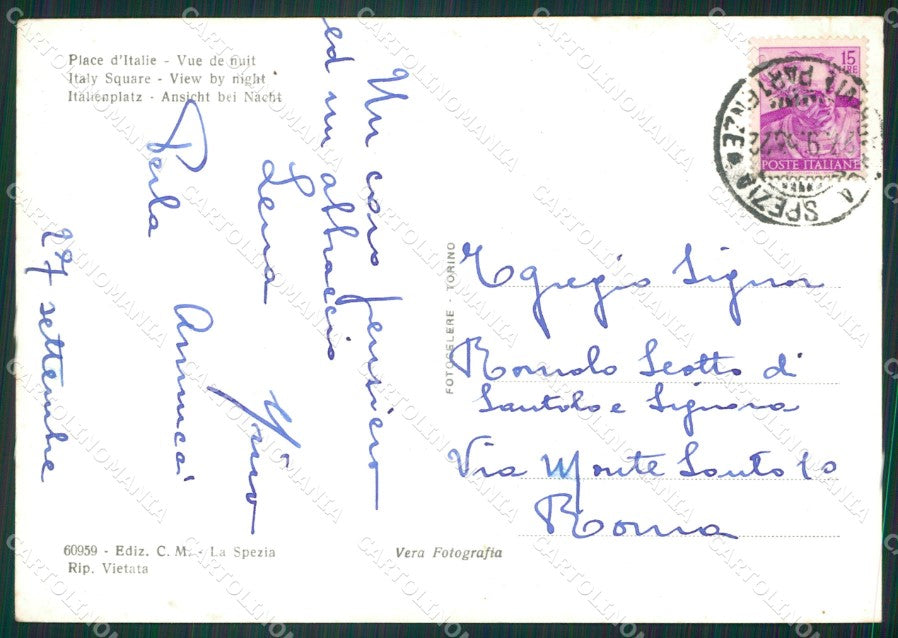 Place d'Italie - Vue de nuit
Italy Square - View by night
Italienplatz - Ansicht bei Nacht
Un caro pensiero
ed un abbraccio
Lena Gino
Perla Annucci
27 settembre
15
LIRE
POSTE ITALIANE
LA SPEZIA
PARTENZE
FOTOCELERE - TORINO
Egregio Signor
Romolo Scotto di
Santolo e Signora
Via Monte Santo 10
Roma
60959 - Ediz. C. M. - La Spezia
Rip. Vietata
Vera Fotografia
CARTOLINOMANIA